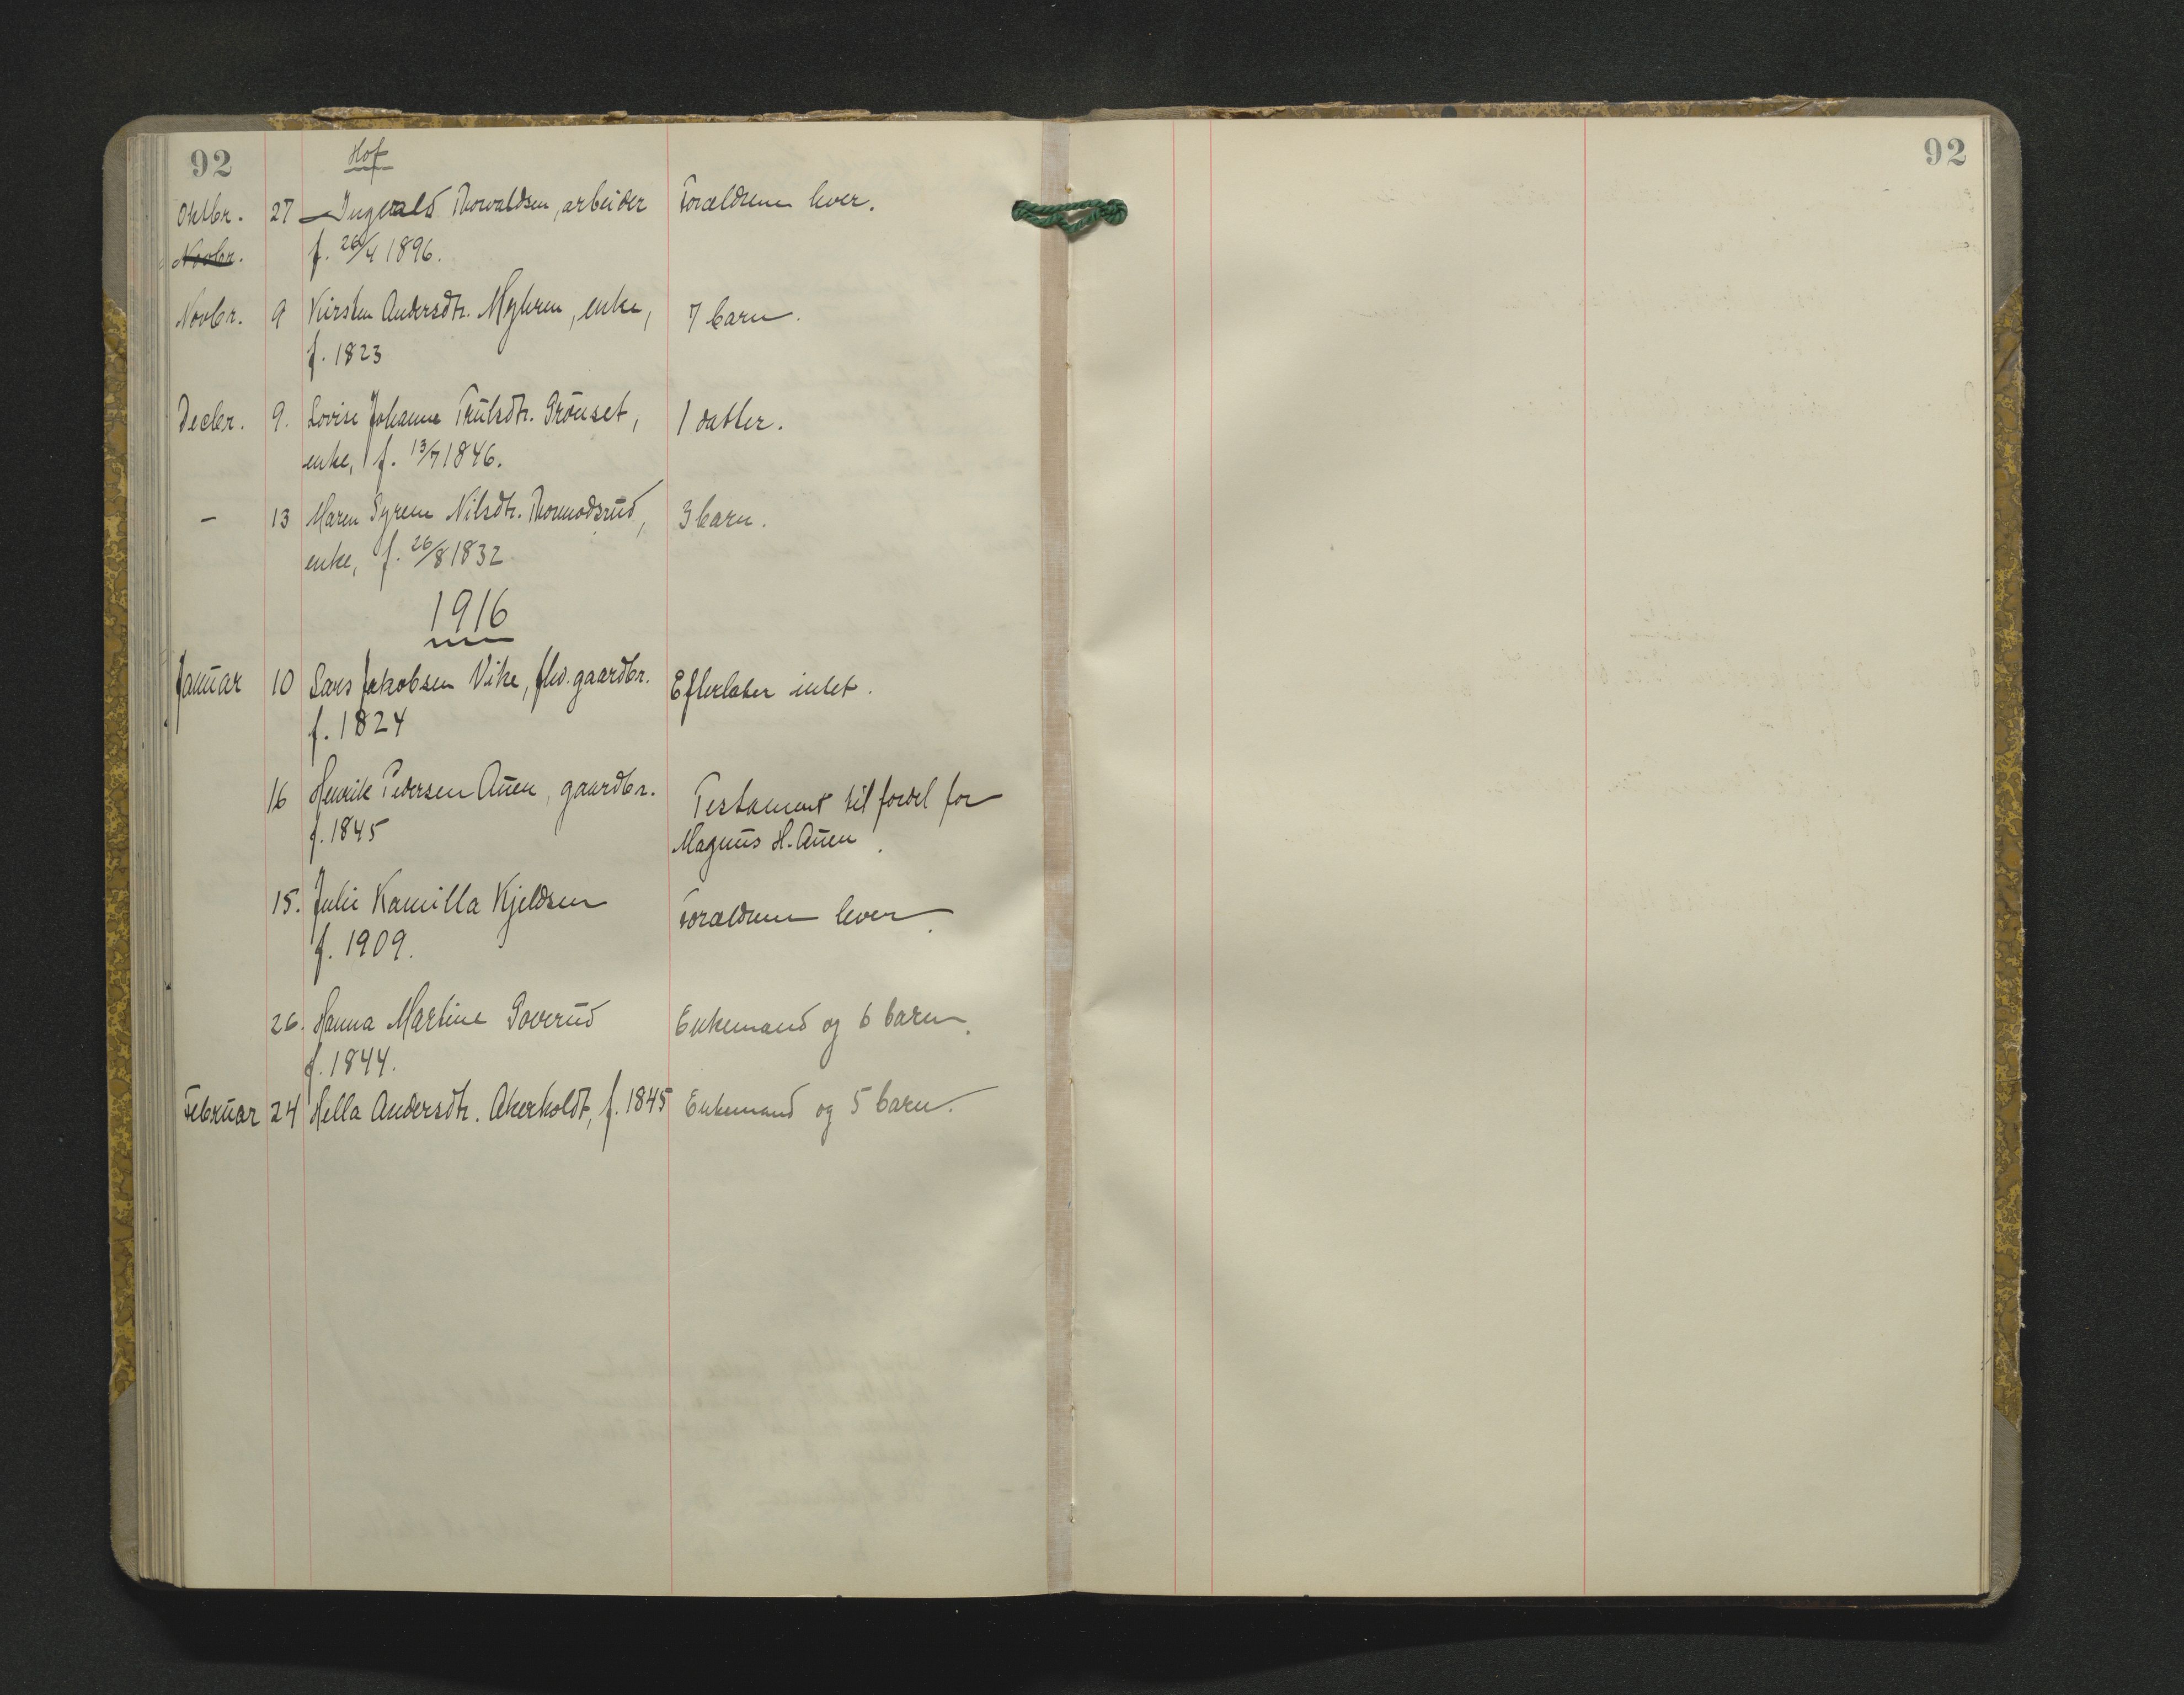 92
Hof
92
Oktbr. 27 Ingvald Thorvaldsen, arbeider Forældrene lever.
Novbr. f. 26/4 1896.
Novbr. 9 Kirsten Andersdtr. Myhren, enke, 7 barn.
f. 1823
Decbr. 9. Lovise Johanne Trulsdtr. Grönset, 1 datter.
enke, f. 13/7 1846.
- 13 Maren Syrene Nilsdtr. Thormodsrud, 3 barn.
enke, f. 26/8 1832
1916
Januar 10 Lars Jakobsen Vike, fhv. gaardbr. Efterlater intet.
f. 1824
16 Henrik Pedersen Auen, gaardbr. Testament til fordel for
f. 1845 Magnus H. Auen.
15. Julie Kamilla Kjeldsen Forældrene lever.
f. 1909.
26. Hanna Martine Goverud Enkemand og 6 barn.
f. 1844.
Februar 24 Hella Andersdtr. Akerholdt, f. 1845 Enkemand og 5 barn.